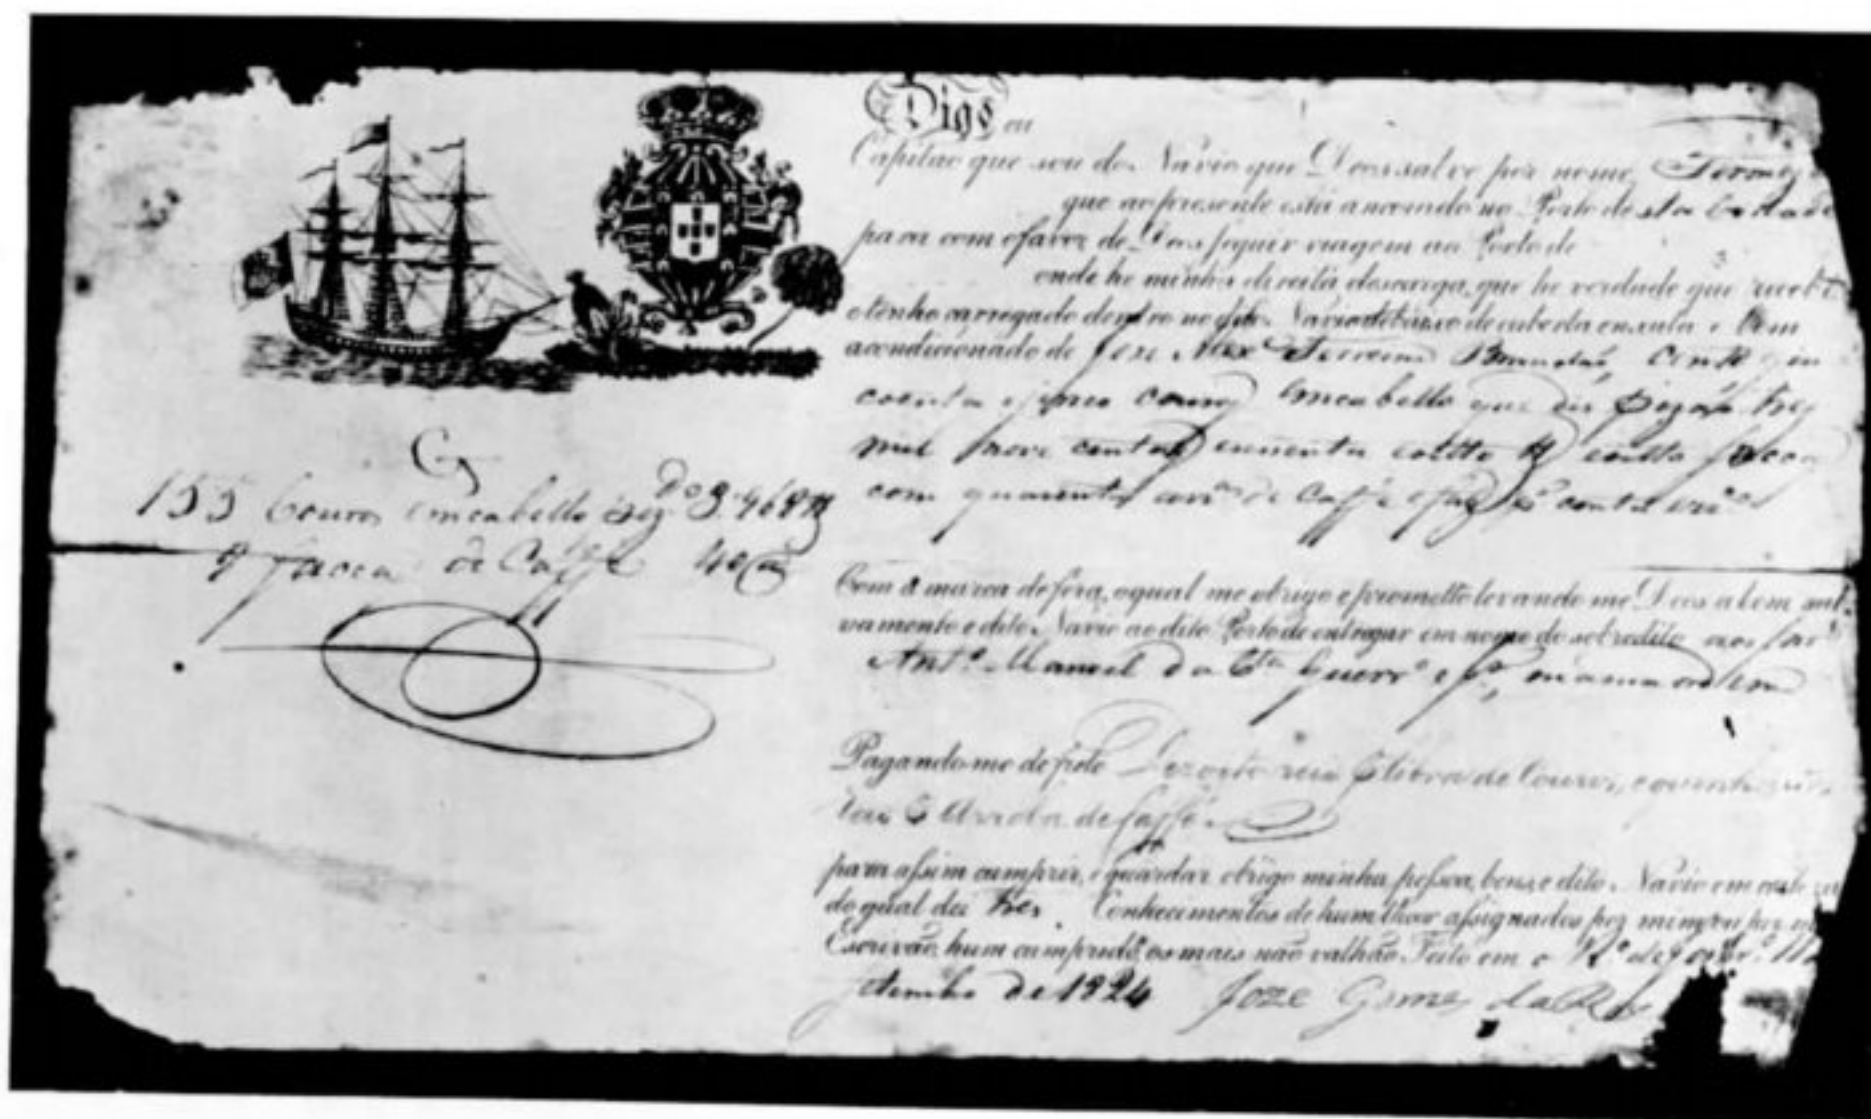 G
155 Couros emcabello pez.do 3.968 ₶
8 saccas de Caffe 40 @
Digo eu
Capitão que sou do Navio que Deos salve por nome
que ao presente está ancorado no Porto desta Cidade
para com o favor de Deos seguir viagem ao Porto de
onde he minha direita descarga, que he verdade que recebi
e tenho carregado dentro no dito Navio debaixo de cuberta enxuta e bem
acondicionado de Joze Alex.e Ferreira Brandaõ, cento e cin
coenta e sinco couros emcabello que diz pezaõ tres
mil nove centas secenta e oitto ₶ e oitto saccas
com quarenta de Caffe e faz p.r conta
Com a marca de fora, o qual me obrigo e prometto levando me Deos a bom sal-
vamento e dito Navio ao dito Porto de entregar em nome do sobredito aos
Ant.o Manoel da C.ta Guerr.o e
Pagando-me de frete Dezoito reis p libra de Couros, e quinhentos
reis p Arroba de Caffé
para assim cumprir, e guardar obrigo minha pessoa, bens, e dito Navio em certeza
do qual dei tres Conhecimentos de hum theor assignados por mim ou por meu
Escrivão, hum cumprido, os mais não valhão. Feito em o R.o de Janr.o 11
Setembro de 1824 Joze Gomes da